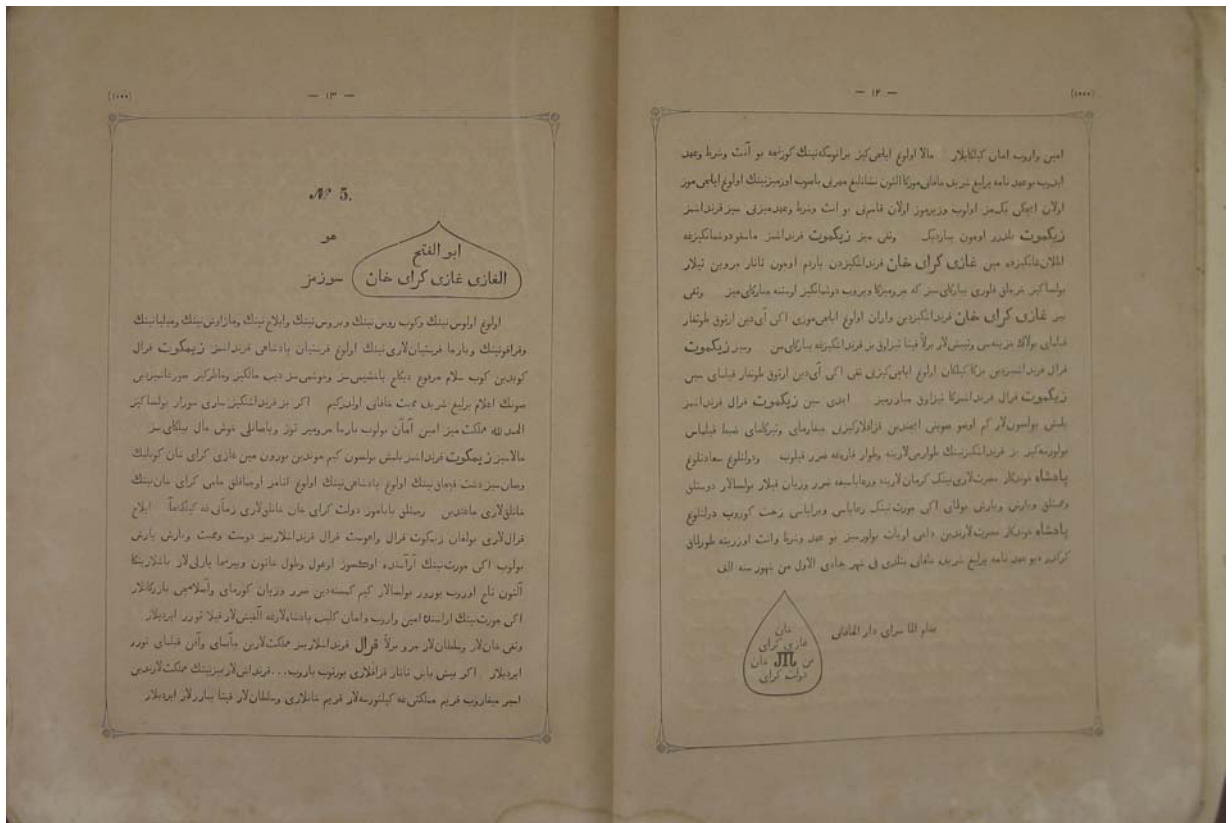 — ١٢ —
(١٠٠٠)
امین واروب امان کیلکایلار مالا اولوغ ایاچی‌کیز برانومکه‌نینك کوزنجه بو آنت وشرط وعهد
ایدوب بو عهد نامه یرلیغ شریف خاقانی‌موزکا التون نشانلیغ مهرنی باصوب اوزمیزنینك اولوغ ایاچی‌موز
اولان ایچکی بك‌مز اولوب وزیرموز اولان بو انت وشرط وعهدمیزنی سیز قرنداشمز
زیکموت بلدرر اوجون یباردیك وتقی میز زیکموت قرنداشمز دوشمانکیزغه
مین غازی کرای خان قرنداشکیزدن یاردم اوجون تاتار چروین تیلار
بولساکیز خرجلق فلوری یبارکای‌سز که چرومیزکا ویروب دوشمانکیز اوستنه یبارکای‌میز وتقی
بیز غازی کرای خان قرنداشکیزدین واران اولوغ ایاچی‌موزی اکی آی‌دین ارتوق طوتقار
قیلمای بولاك خزینه‌سی برلا قیتا تیزاوق بز قرنداشکیزغه یبارکای‌سن وسیز زیکموت
قرال قرنداشمزدین بزکا کیلکان اولوغ ایاچی‌کیزنی تقی اکی آی‌دین ارتوق طوتقار قیلمای مین
زیکموت قرال قرنداشمزکا تیزاوق یبارورمیز ایمدی سین زیکموت قرال قرنداشمز
بلمش بولسون‌لار کم اوزو صوینی ایچندین قزاقلارکیزنی چیقارمای وتیرکامای ضبط قیلماس
بولورسه‌کیز بز قرنداشکیزنینك طوارچی‌لارینه وطوار قاریغه ضرر قیلوب ودولتلوغ سعادتلوغ
پادشاه خوندکار حضرت‌لاری‌نینك کرمان‌لارینه ورعایاسیغه ضرر وزیان قیلار بولسالار دوستلق
ومحبتلق ویارش ویارش بولمای اکی یورت‌نینك رعایاسی وبرایاسی زحمت کوروب دولتلوغ
پادشاه خوندکار حضرت‌لارندین داغی اویات بولورمیز بو عهد وشرط وانت اوزرینه طورماق
کرکدور دیو عهد نامه یرلیغ شریف خاقانی بتلدی فی شهر جمادی الاول من شهور سنه الف
بمقام الما سرای دار الخاقانی
خان
غازی کرای
بن خان
دولت کرای
— ١٣ —
(١٠٠٠)
№ 5.
هو
ابو الفتح
الغازی غازی کرای خان سوزمز
اولوغ اولوس‌نینك وکوب روس‌نینك وبروس‌نینك وایلاح‌نینك ومازاوش‌نینك
وقراقونینك وبارچا قرستیان‌لاری‌نینك اولوغ قرستیان پادشاهی قرنداشمز زیمکوت قرال
کوبدین کوب سلام مرفوع دیکاچ یاخشی‌سز وخوش‌سز دیب حالکیز وخاطرکیز صورغانمیزدین
صونك اعلام یرلیغ شریف محبت خاقانی اولدرکیم اکر بز قرنداشکیز ساری سورار بولساکیز
الحمد لله مملکت میز امین آمان بولوب بارچا چرومیز توز ویاساقلی خوش حال بیلکای‌سز
حالا سیز زیمکوت قرنداشمز بلمش بولسون کیم موندین بورون مین غازی کرای خان کوبلیك
دشت قپچاق‌نینك اولوغ پادشاهی‌نینك اولوغ اتامز حاجی کرای خان‌نینك
خانلق‌لاری رحمتلق بابامز دولت کرای خان خانلق‌لاری زمانی‌غه کیلکانچا ایلاح
قرال‌لاری بولغان زیکموت قرال واغوست قرال قرنداشلاریمز دوست ومحبت ویارش یارش
بولوب اکی یورت‌نینك آراسنده اوکسوز اوغول وطول خاتون ویبرجا یارلی‌لار باشلارینکا
آلتون تاج اوروب یورور بولسالار کیم کیمسنه‌دین ضرر وزیان کورمای بازرکانلار
اکی یورت‌نینك اراسنه امین واروب وامان کلیب پادشاه‌لارغه آلقیش‌لار قیلا تورر ایردیلار
وتقی خان‌لار وسلطان‌لار چرو برلا قرال قرنداشلاریمز مملکت‌لارین چاپمای وآقن قیلمای تورر
ایردیلار اکر بیش یاش تاتار قزاقلاری یورتوب باروب... قرنداش‌لاریمزنینك مملکت‌لارندین
اسیر چیقاروب قریم مملکتی‌غه کیلتورسه‌لار قریم خانلاری وسلطان‌لار قیتا یبارر‌لار ایردیلار